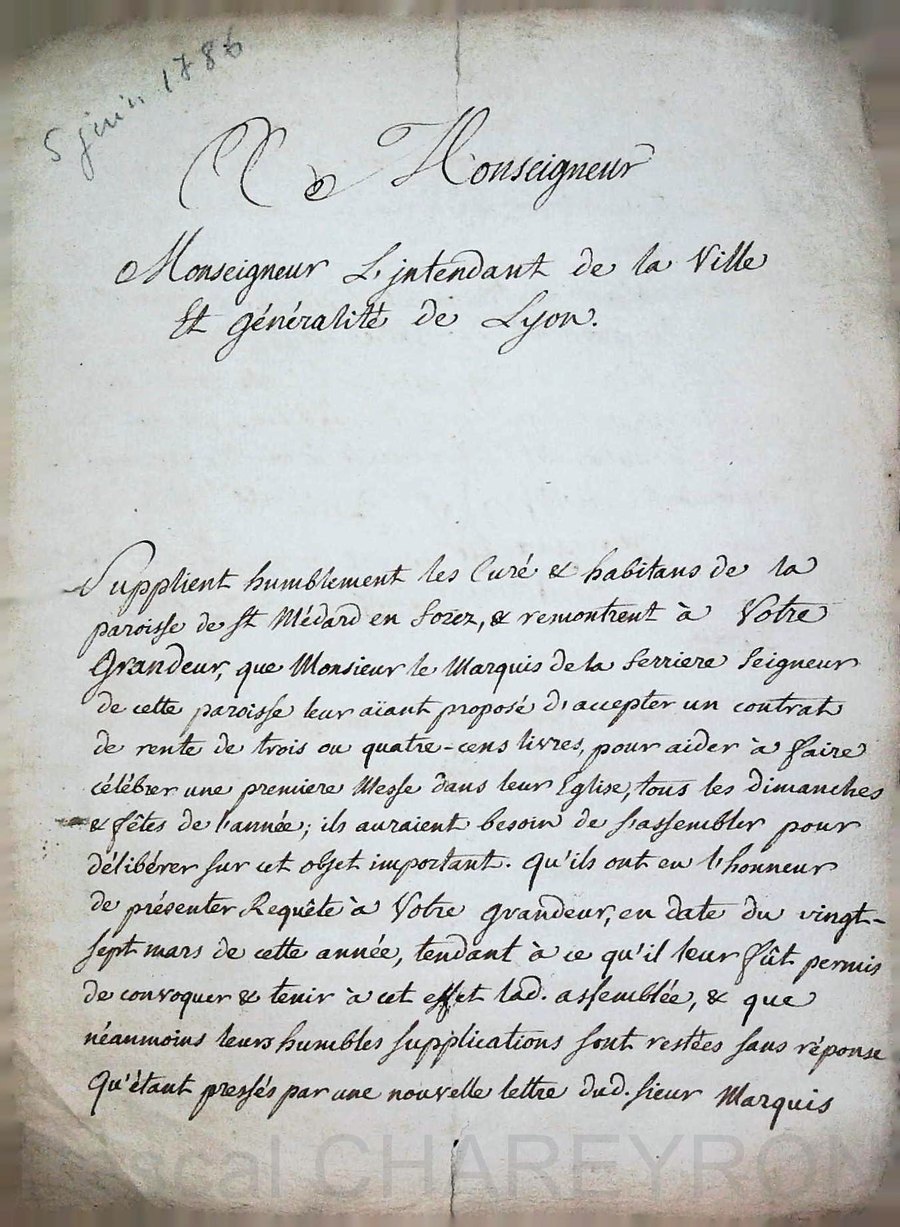 5 juin 1786
A Monseigneur
Monseigneur L'jntendant de la Ville
Et généralité de Lyon.
Supplient humblement les Curé & habitans de la
paroisse de St Médard en Forez, & remontrent à Votre
Grandeur, que Monsieur le Marquis de la Ferriere Seigneur
de cette paroisse leur aïant proposé d'accepter un contrat
de rente de trois ou quatre-cens livres, pour aider à faire
célébrer une premiere Messe dans leur Eglise, tous les dimanches
& fêtes de l'année; ils auraient besoin de s'assembler pour
délibérer sur cet objet important. qu'ils ont eu l'honneur
de présenter Requête à Votre grandeur, en date du vingt-
sept mars de cette année, tendant à ce qu'il leur fût permis
de convoquer & tenir à cet effet lad. assemblée, & que
néanmoins leurs humbles supplications sont restées sans réponse
Qu'étant pressés par une nouvelle lettre dud. sieur Marquis
Pascal CHAREYRON